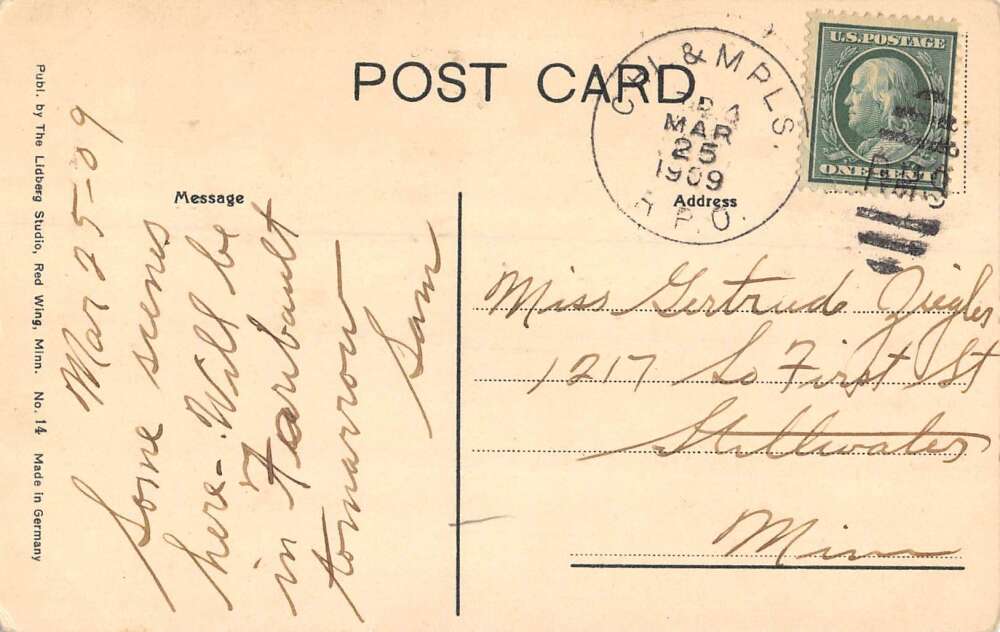 POST CARD
U.S. POSTAGE
ONE CENT
& MPLS.
MAR
25
1909
R.P.O.
Message
Address
Publ. by The Lidberg Studio, Red Wing, Minn. No. 14 Made in Germany
Mar 25-09
Some scenes
here - Will be
in Faribault
tomarrow
Sam
Miss Gertrude Ziegler
1217 So First St
Stillwater
Minn